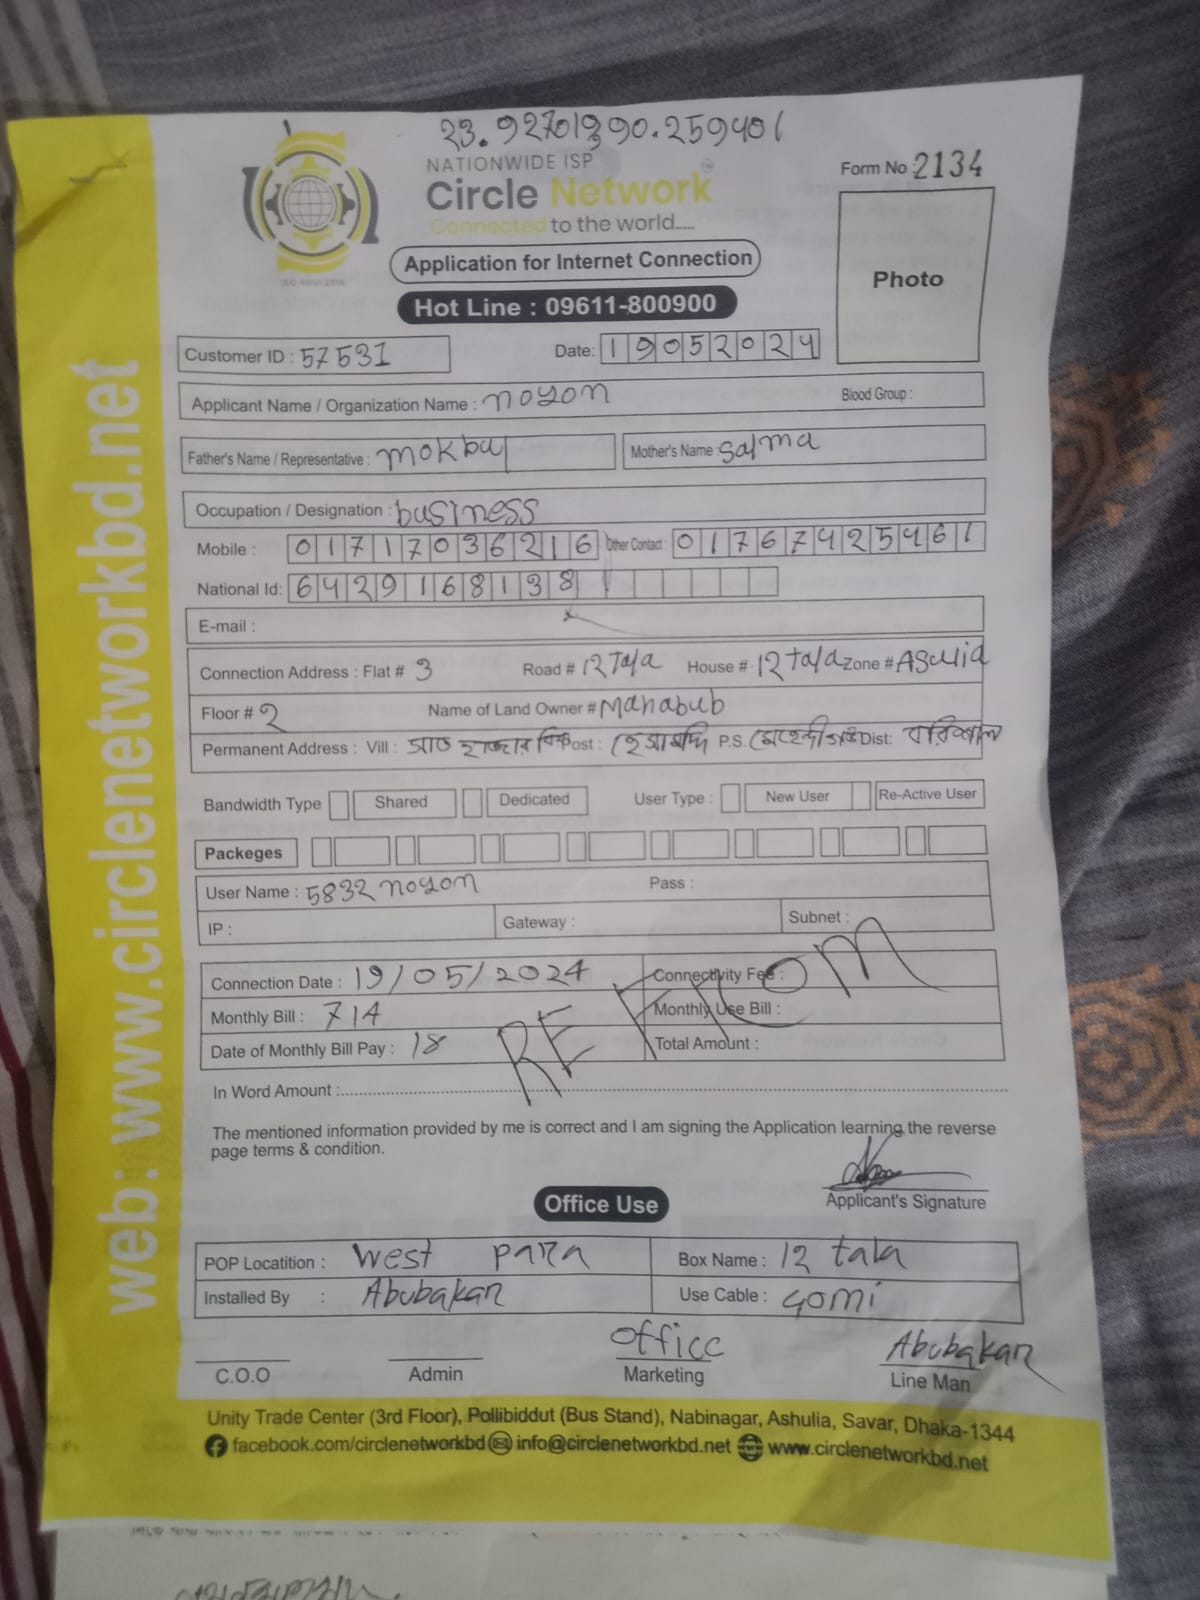 23.9270139 90.259401
NATIONWIDE ISP
Circle Network
Connected to the world.....
ISO 9001:2015
Form No 2134
Photo
Application for Internet Connection
Hot Line : 09611-800900
Customer ID : 57531
Date: 19052024
Applicant Name / Organization Name : noyon
Blood Group :
Father's Name / Representative : mokbul
Mother's Name : Salma
Occupation / Designation : business
Mobile : 01717036216 Other Contact : 01767425461
National Id: 6429168138
E-mail :
Connection Address : Flat # 3 Road # 12 Tala House # 12 tala Zone # Asulia
Floor # 2 Name of Land Owner # Mahabub
Permanent Address : Vill : সাত হাজার বিঘা Post : হেসামদ্দি P.S. মেহেন্দীগঞ্জ Dist: বরিশাল
Bandwidth Type Shared Dedicated User Type : New User Re-Active User
Packeges
User Name : 5832 noyon Pass :
IP : Gateway : Subnet :
Connection Date : 19/05/2024 Connectivity Fee :
Monthly Bill : 714 Monthly Use Bill :
Date of Monthly Bill Pay : 18 Total Amount :
RE FROM
In Word Amount :
The mentioned information provided by me is correct and I am signing the Application learning the reverse
page terms & condition.
Applicant's Signature
Office Use
POP Locatition : West para Box Name : 12 tala
Installed By : Abubakar Use Cable : 40mi
Office Abubakar
C.O.O Admin Marketing Line Man
Unity Trade Center (3rd Floor), Pollibiddut (Bus Stand), Nabinagar, Ashulia, Savar, Dhaka-1344
facebook.com/circlenetworkbd info@circlenetworkbd.net www.circlenetworkbd.net
web: www.circlenetworkbd.net